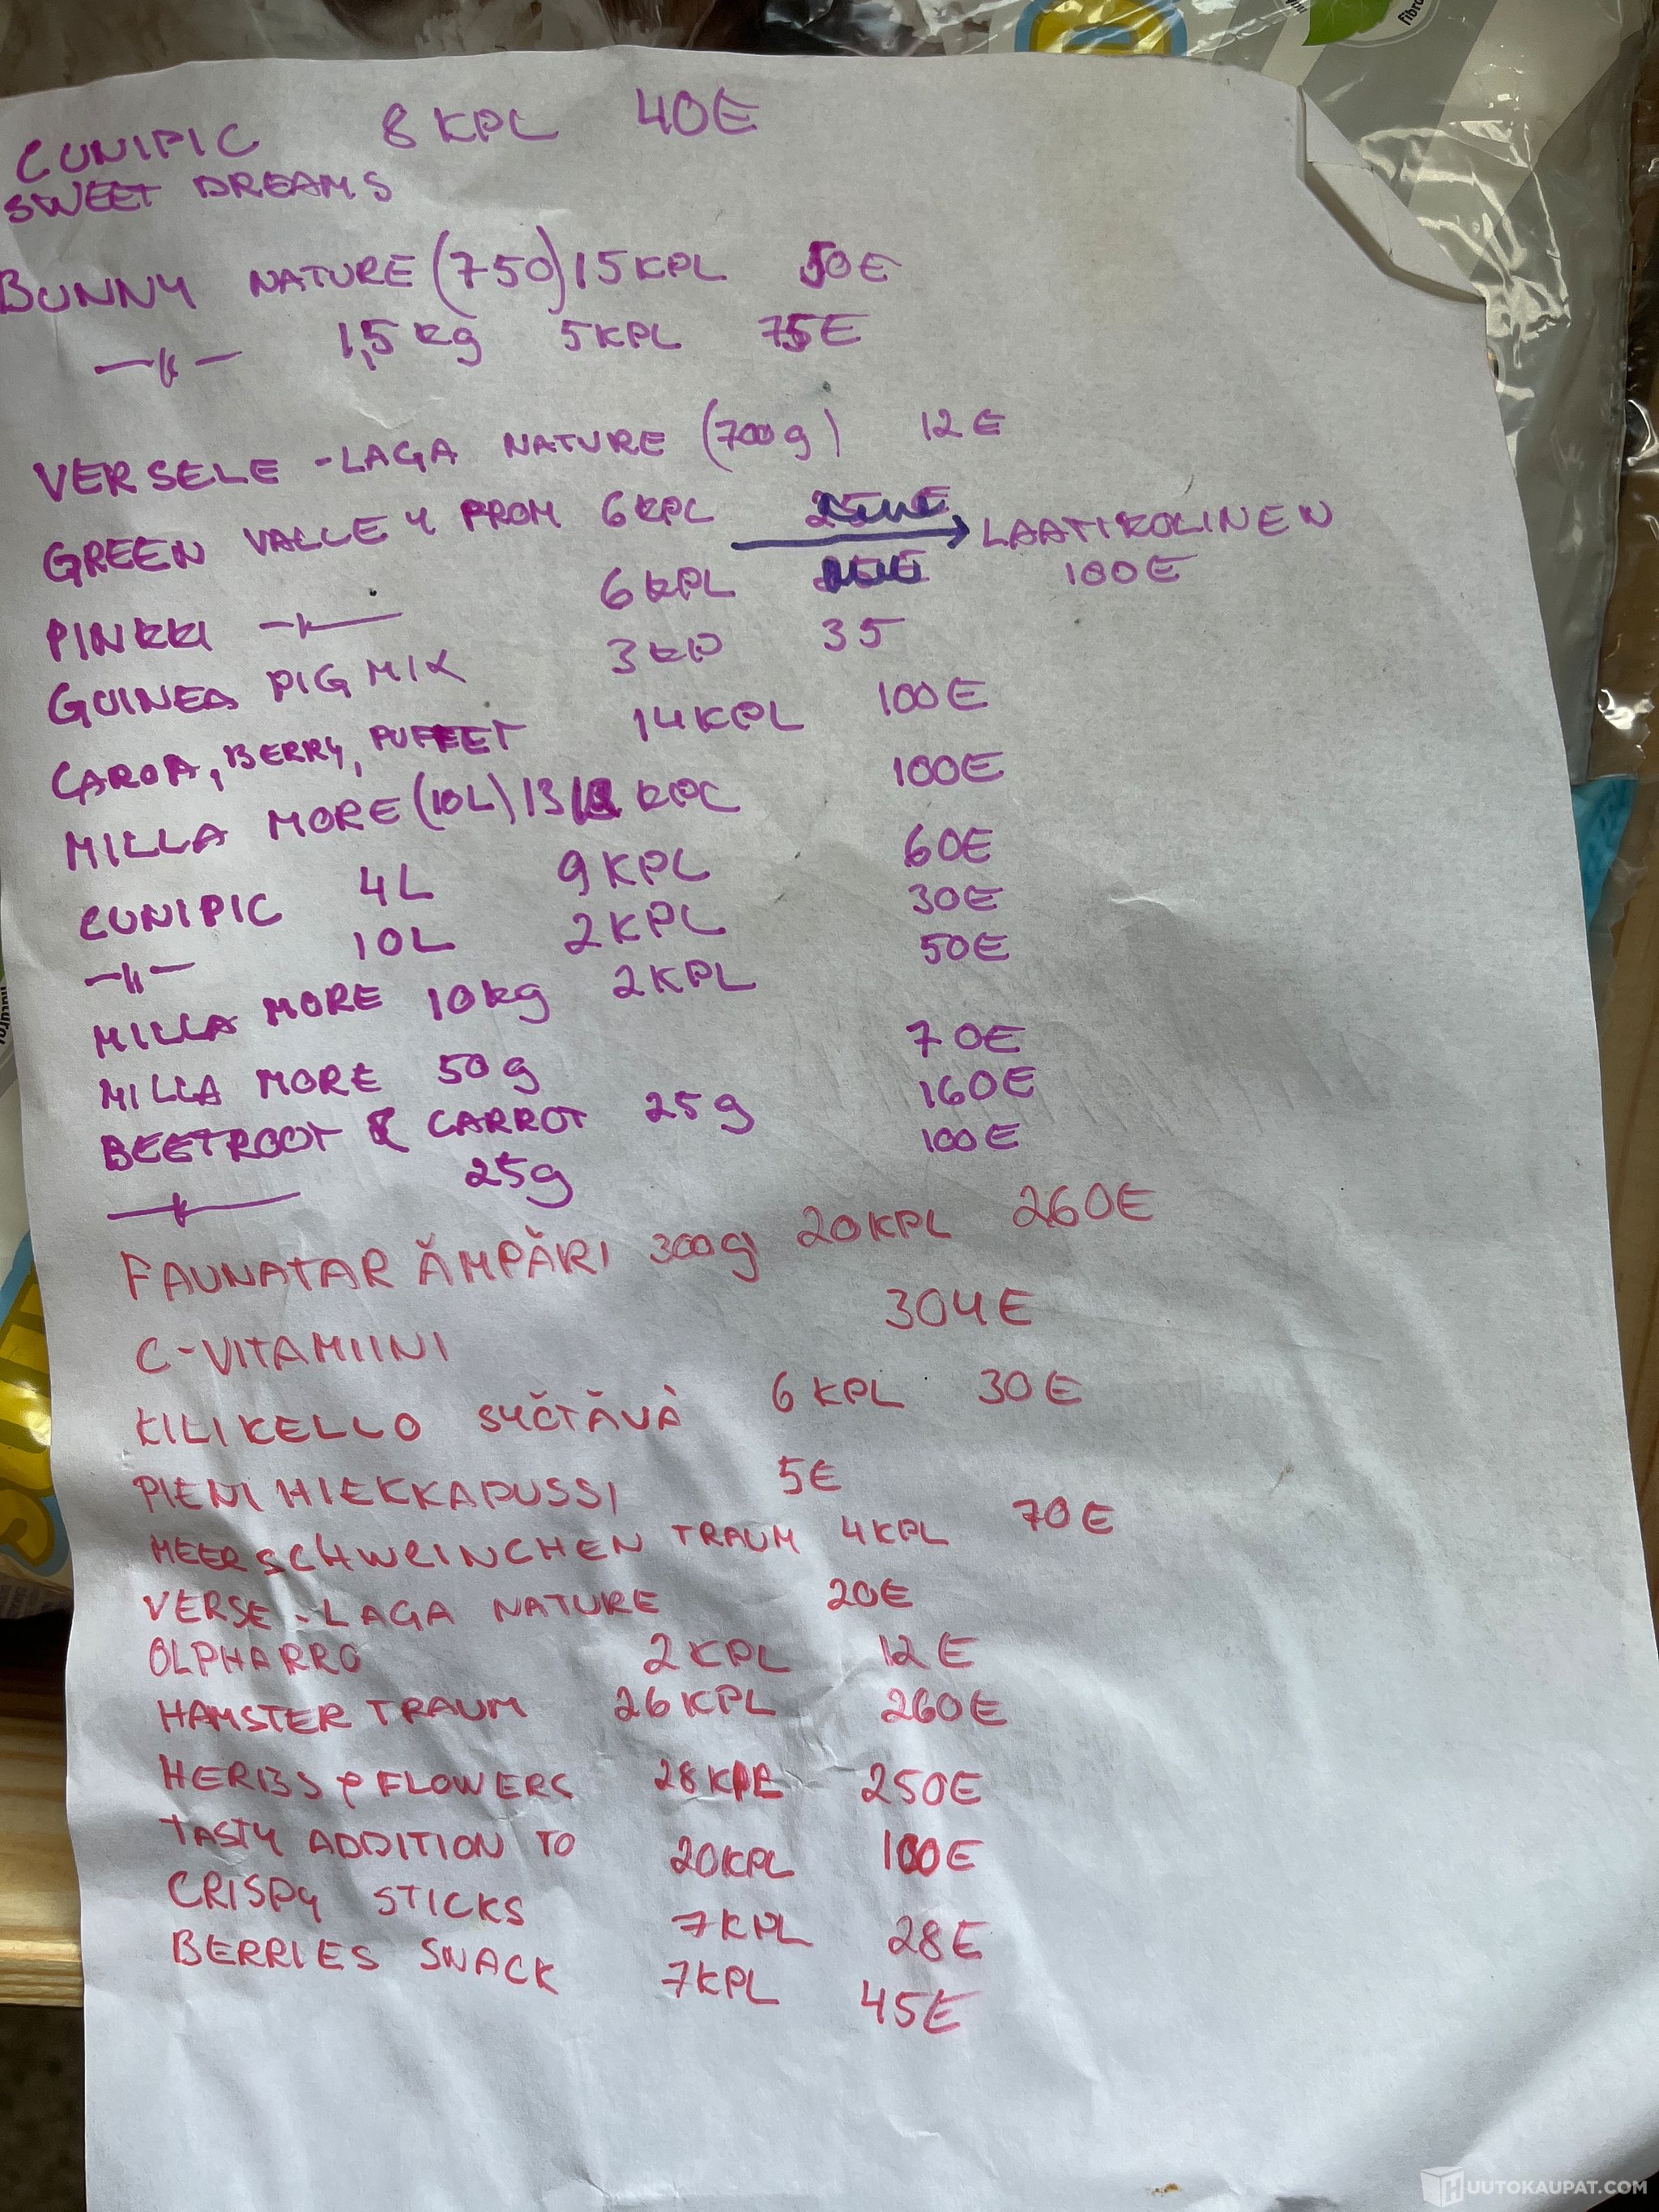 CUNIPIC 8 KPL 40E
SWEET DREAMS
BUNNY NATURE (750) 15 KPL 50E
—||— 1,5 kg 5 KPL 75E
VERSELE -LAGA NATURE (700g) 12 E
GREEN VALLEY PROM 6 KPL → LAATIKOLINEN
PINKKI —||— 6 KPL 100E
GUINEA PIG MIX 3 KP 35
CAROA, BERRY, PUFFET 14 KPL 100E
MILLA MORE (10L) 13 KPL 100E
CUNIPIC 4L 9 KPL 60E
—||— 10L 2 KPL 30E
MILLA MORE 10kg 2 KPL 50E
MILLA MORE 50g 70E
BEETROOT & CARROT 25g 160E
—||— 25g 100E
FAUNATAR ÄMPÄRI 300g 20 KPL 260E
C-VITAMIINI 304E
KILIKELLO SYÖTÄVÄ 6 KPL 30E
PIENI HIEKKAPUSSI 5E
MEERSCHWEINCHEN TRAUM 4 KPL 70E
VERSE-LAGA NATURE 20E
OLPHARRO 2 KPL 12E
HAMSTER TRAUM 26 KPL 260E
HERBS & FLOWERS 28 KPL 250E
TASTY ADDITION TO 20 KPL 100E
CRISPY STICKS 7 KPL 28E
BERRIES SNACK 7 KPL 45E
HUUTOKAUPAT.COM